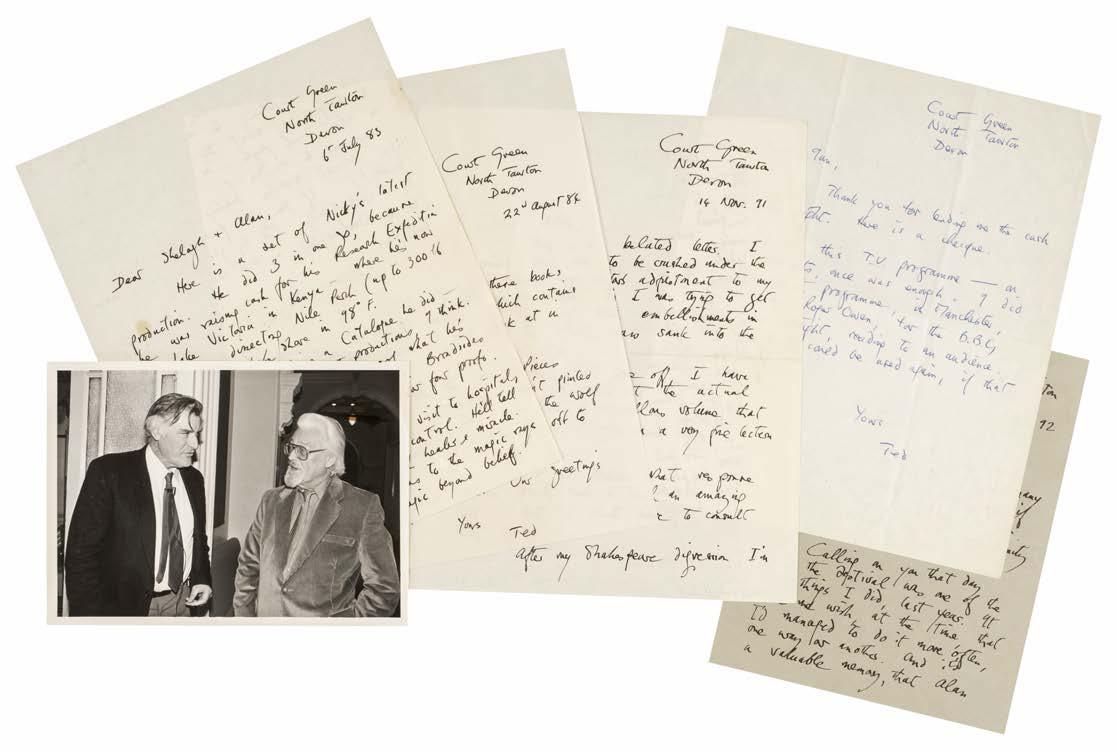 Court Green
North Tawton
Devon
6th July 83
Dear Shelagh + Alan,
Here is a set of Nicky's latest
production. He did 3 in one go, because
he was raising cash for his Research Expedition
to Lake Victoria in Kenya — where he's now
directing Nile Perch (up to 300 lb
share in 98° F.
in a Catalogue he did —
production, I think.
what he's
Broadsides
few proofs.
visit to hospital,
control. He'll tell
healer & miracle.
to the magic rays
magic beyond belief.
Court Green
North Tawton
Devon
22nd August 84
there books,
which contains
k at in
pieces
't printed
the wolf
off to
greetings
Yours
Ted
Court Green
North Tawton
Devon
14 Nov. 91
belated letter. I
to be crushed under the
adjustment to my
I was trying to get
embellishments in
sank into the
off, I have
the actual
volume that
a very fine lection
what response
an amazing
to consult
After my Shakespeare digression I'm
Court Green
North Tawton
Devon
Thank you for lending me the cash
Here is a cheque.
this T.V. programme — on
once was enough. I did
programme, in Manchester,
Roger Owen, for the B.B.C
reading to an audience.
could be used again, if that
Yours
Ted
92
many
if
Calling on you that day
the festival was one of the
things I did, last year. It
me wish at the time that
I'd managed to do it more often,
one way or another. And it's
a valuable memory, that Alan